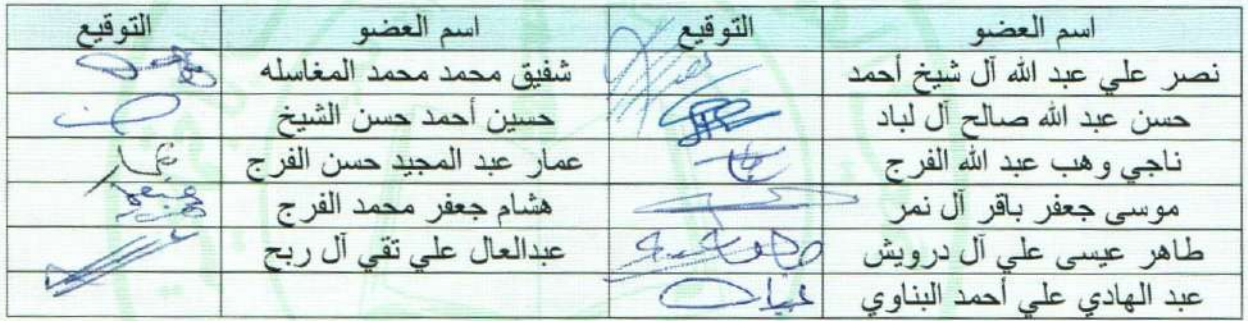 اسم العضو التوقيع اسم العضو التوقيع
نصر علي عبد الله آل شيخ أحمد شفيق محمد محمد المغاسله
حسن عبد الله صالح آل لباد حسين أحمد حسن الشيخ
ناجي وهب عبد الله الفرج عمار عبد المجيد حسن الفرج
موسى جعفر باقر آل نمر هشام جعفر محمد الفرج
طاهر عيسى علي آل درويش عبدالعال علي تقي آل ربح
عبد الهادي علي أحمد البناوي